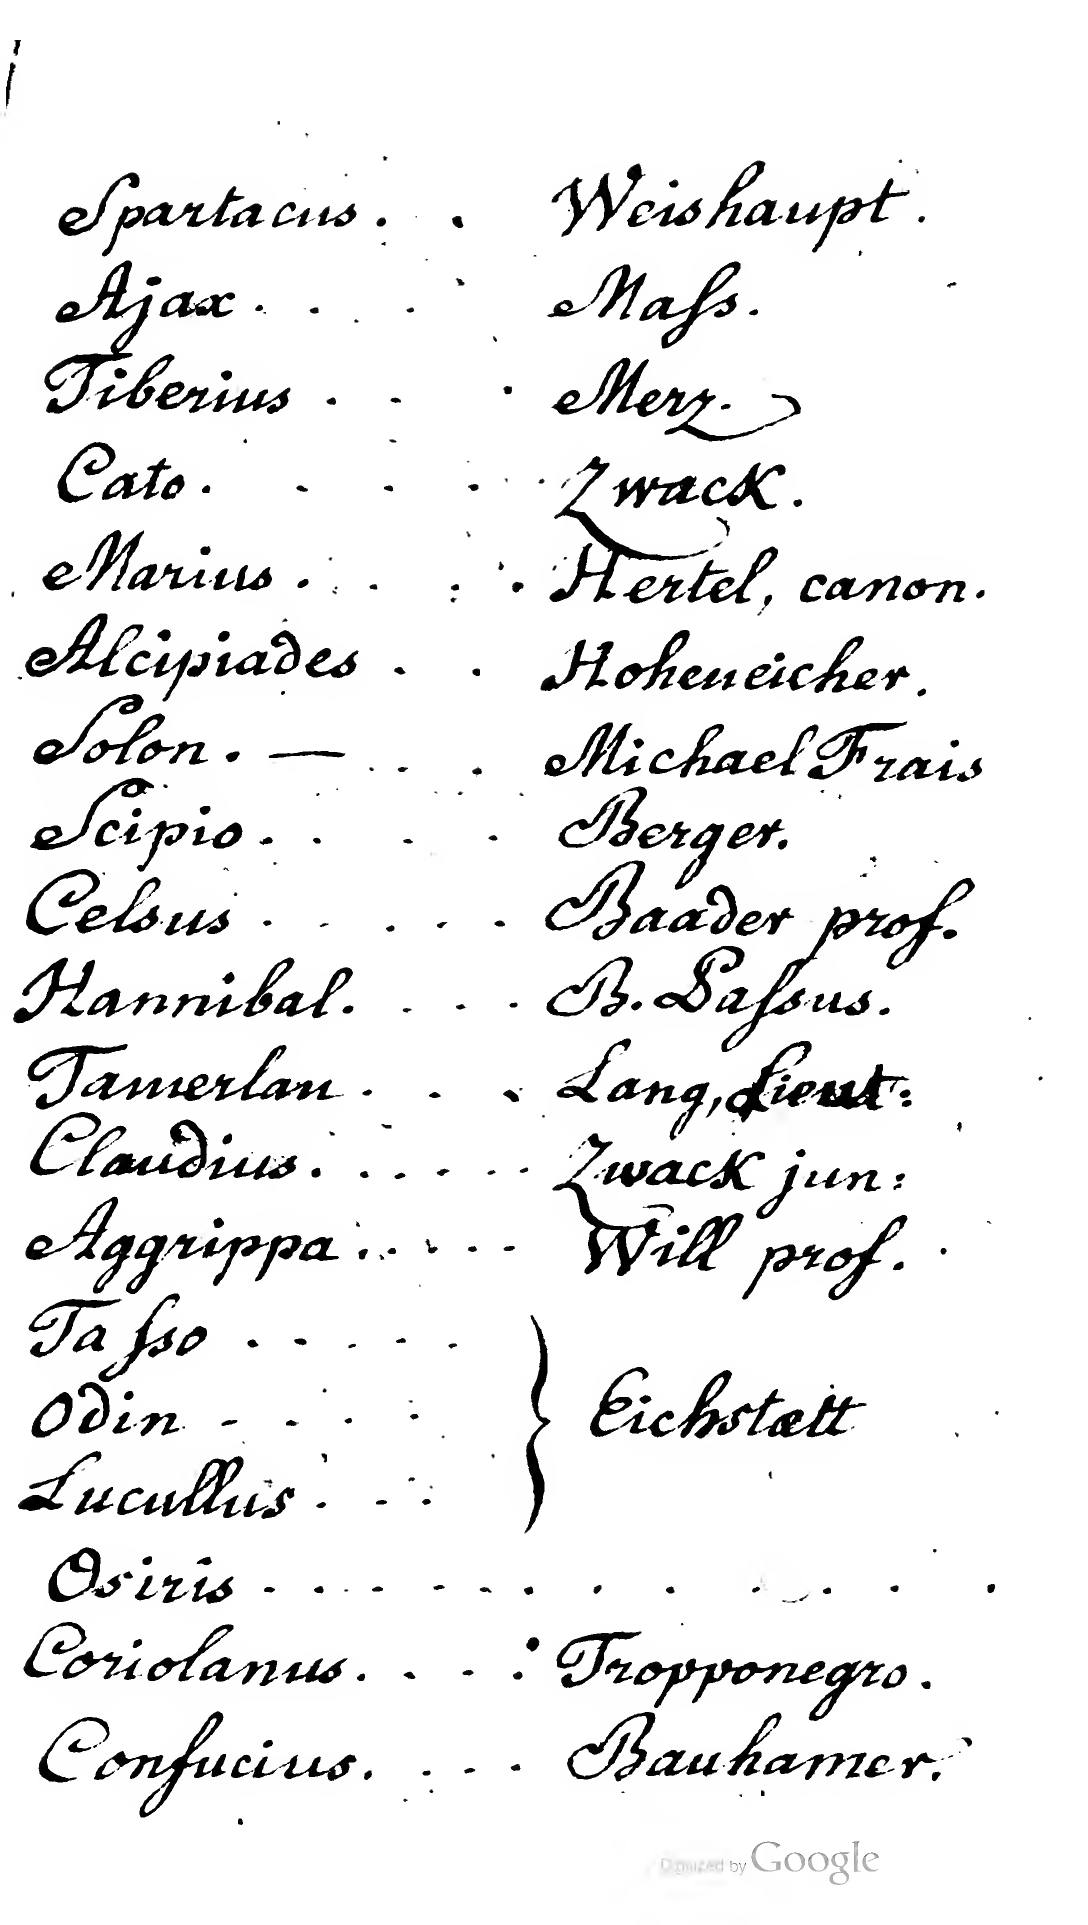 Spartacus . . Weishaupt.
Ajax . . . . Maſs.
Tiberius . . . Merz.
Cato . . . . . Zwack.
Marius . . . . Hertel, canon.
Alcipiades . . Hoheneicher.
Solon. — . . . Michael Frais
Scipio . . . . Berger.
Celsus . . . . . Baader prof.
Hannibal. . . . B. Baſsus.
Tamerlan . . . Lang, Lieut:
Claudius. . . . . . Zwack jun:
Aggrippa . . . . . . Will prof.
Taſso . . . . .
Odin - . . .
Eichstætt
Lucullus . - .
Osiris . . . . . . . . . . . .
Coriolanus. . . : Tropponegro.
Confucius. . . . Bauhamer.
Digitized by Google